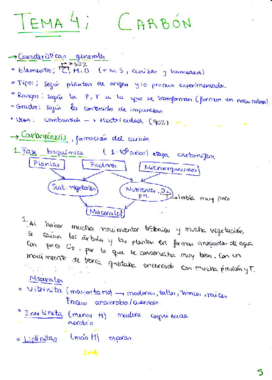 TEMA 4: CARBÓN
→ Características generales
>50%
• Elementos: C, H, O (+ N, S, cenizas y humedad)
• Tipos: Según plantas de origen y/o proceso experimentado.
• Rangos: Según la P, T a la que se transforman (forman en naturaleza)
• Grados: Según la contenido de impurezas
• Usos: Combustión → electricidad (90%)
→ Carbogénesis, formación del carbón
1. Fase bioquímica (1·10⁶ años) etapa carbonígena
Plantas Factores Microorganismos
Sust. vegetales Nutrientes, O₂, pH, varía muy poco
Macerales
1. Al haber mucho movimiento tectónico y mucha vegetación
se caían los árboles y las plantas en zonas anegadas de agua
con poco O₂, por lo que se conservaba muy bien. Con un
movimiento de tierra quedaba encerrado con mucha presión y T.
Macerales
• Vitrinita (mayoritario) → maderas, tallos, troncos, raíces
Proceso anaerobio/cuando
• Inertinita (menos H) madera coquizada
aerobio
• Liptinitas (más H) esporas
5